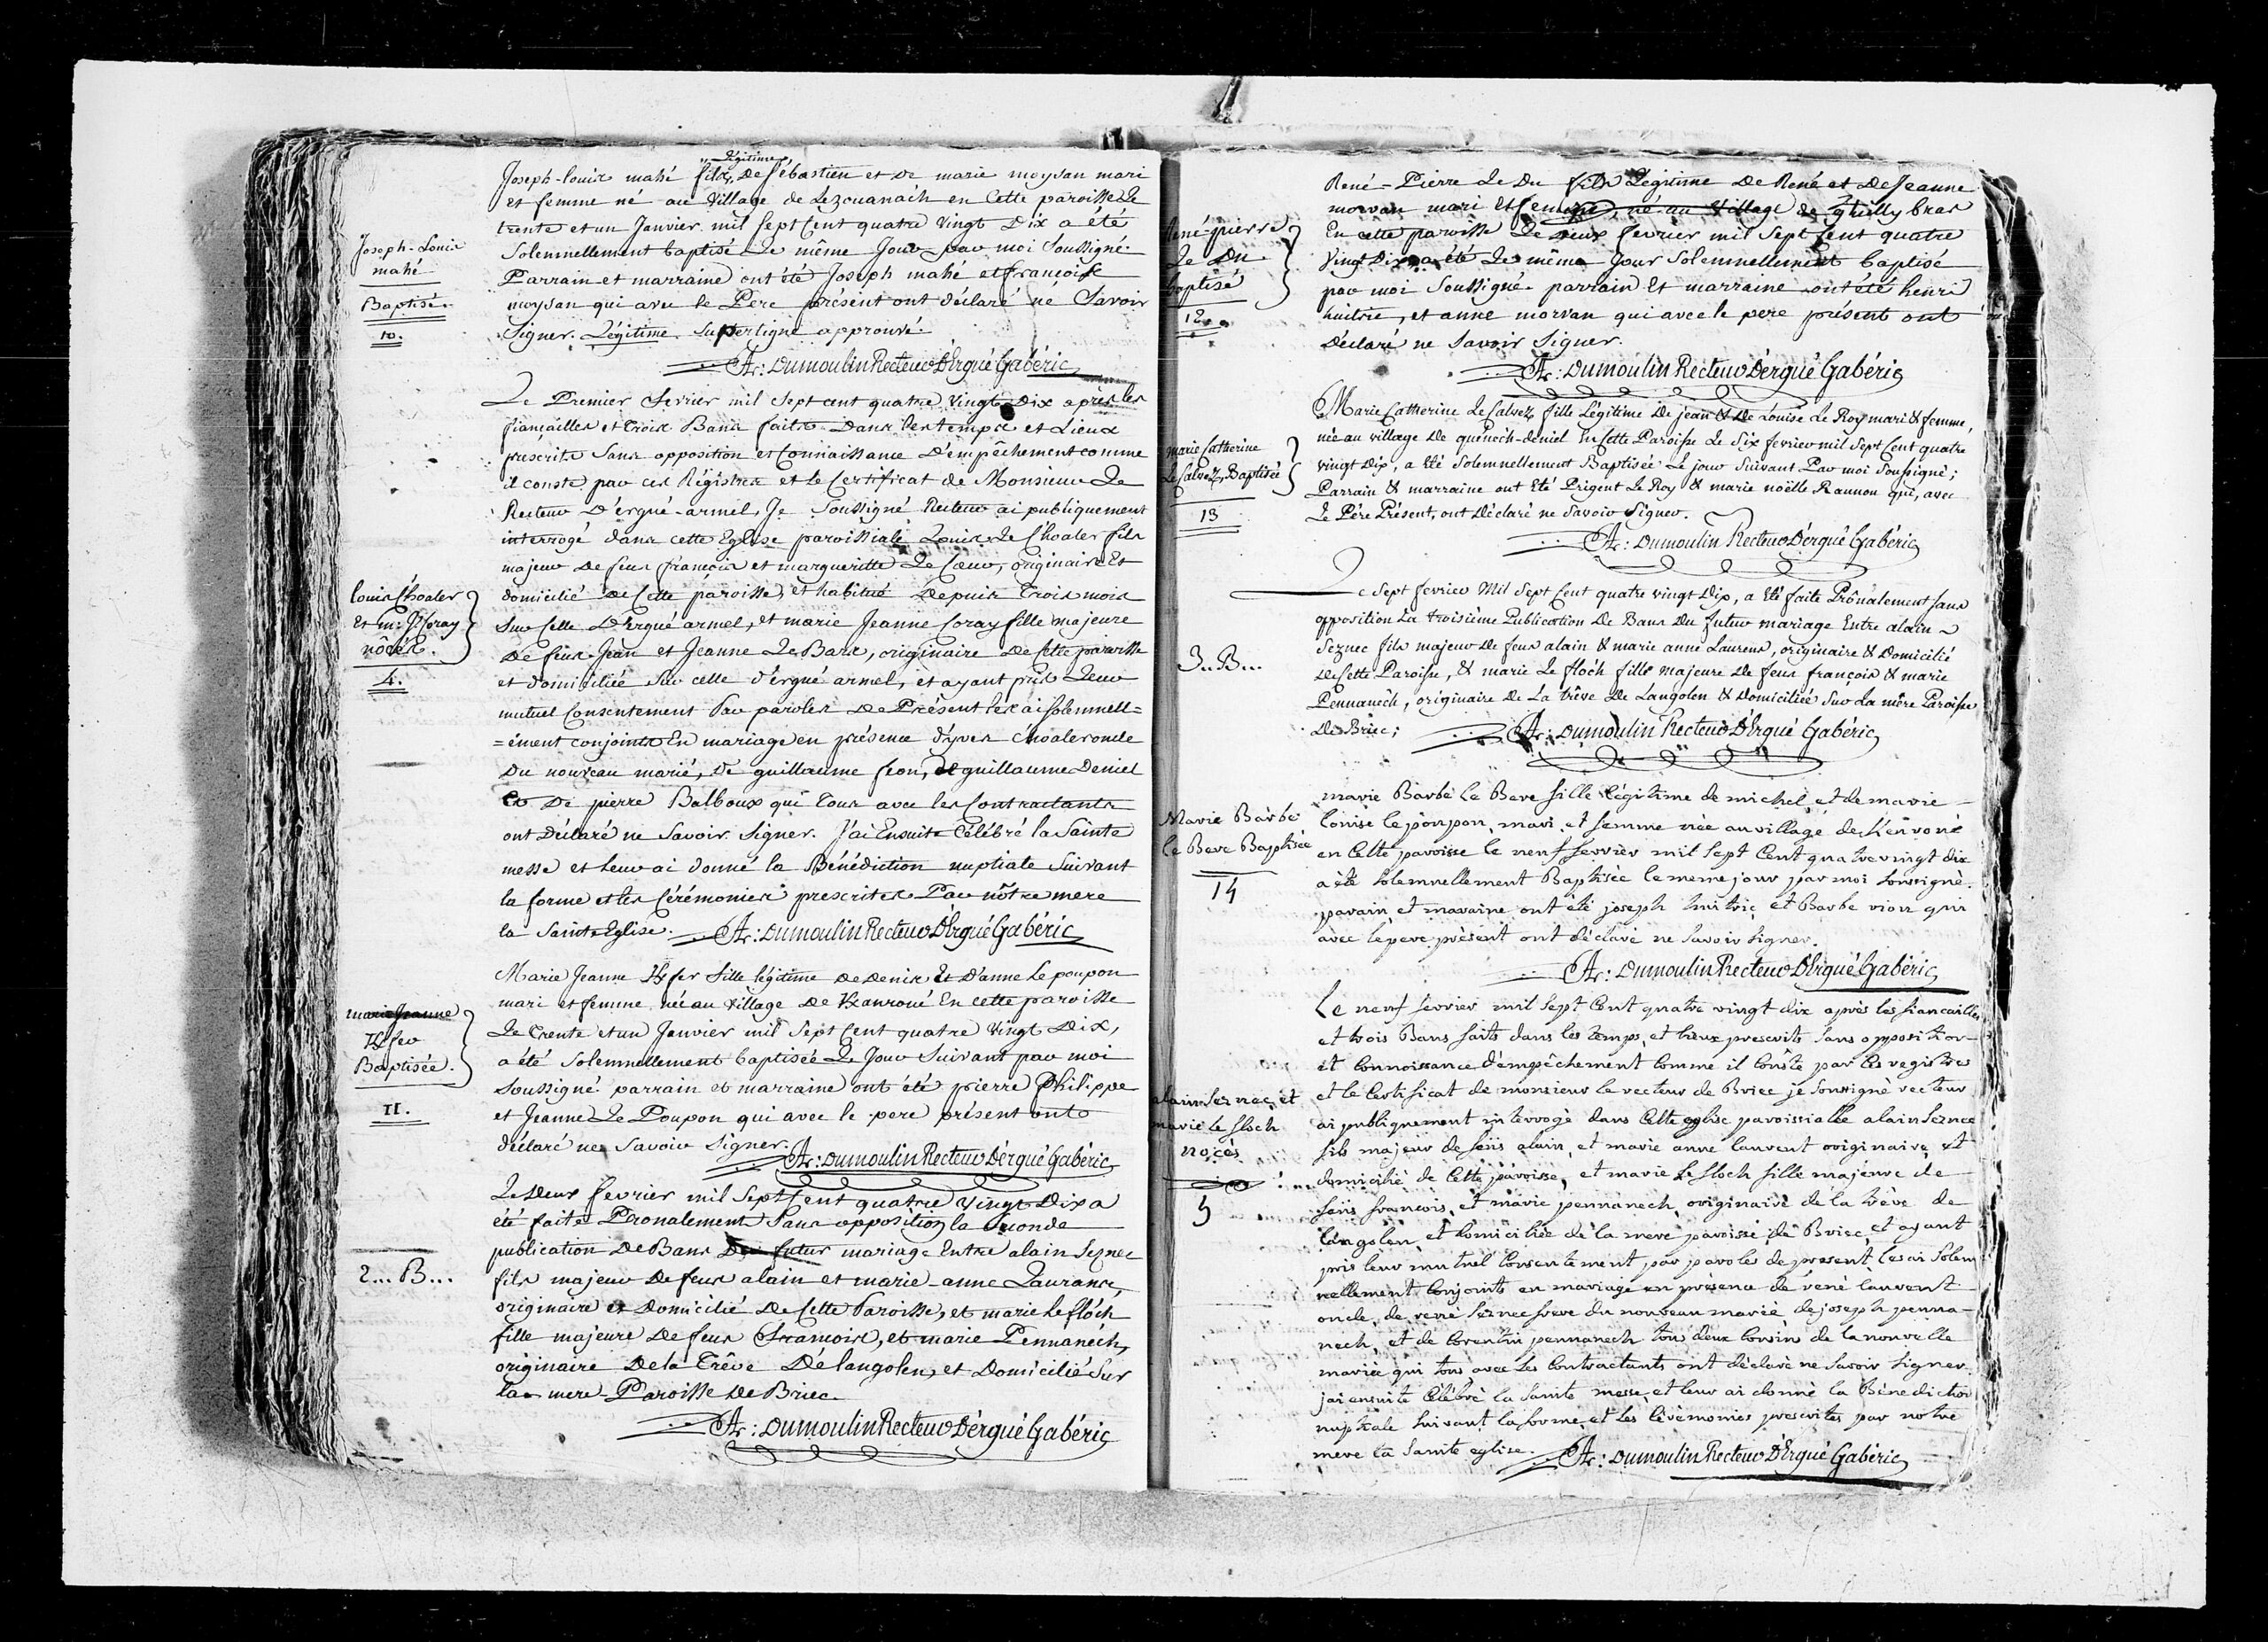 Joseph-Louis
mahé
Baptisé.
10.
légitime
Joseph-louis mahé fils, De sébastien et De marie moysan mari
et femme né au village de Lezouanach en Cette paroisse Le
trente et un Janvier mil sept Cent quatre Vingt Dix a été
Solemnellement baptisé Le même Jour par moi Soussigné
Parrain et marraine ont été Joseph mahé et françoise
moysan qui avec le Pere présent ont déclaré né Savoir
Signer. Légitime Superligne approuvé.
A: Dumoulin Recteur D'Ergué Gabéric
Louis Choaler
Et m: J: Coray
nôcés.
4.
Le Premier fevrier mil Sept cent quatre Vingt Dix après les
fiançailles et trois Bans faits Dans les temps et Lieux
prescrits Sans opposition et Connaissance D'empêchement comme
il conste par ces Régistres et le Certificat de Monsieur Le
Recteur D'érgué-armel, Je Soussigné Recteur ai publiquement
interrogé dans cette Eglise paroissiale Louis Le Choaler fils
majeur De feus françois et margueritte Le Cœur, originaire Et
domicilié De Cette paroisse, et habitué Depuis Trois mois
Sur Celle D'Ergué armel, et marie Jeanne Coray fille majeure
De feus Jean et Jeanne Le Bars, originaire De Cette paroisse
et domiciliée Sur celle d'érgué armel, et ayant pris Leur
mutuel Consentement Par paroles De Présent les ai solemnell=
=ément conjoints En mariage en présence d'yves choaler oncle
Du nouveau marié, De guillaume feon, de guillaume Deniel
Et De pierre Balboux qui Tous avec les Contractants
ont Déclaré ne Savoir Signer. J'ai Ensuite Célébré la Sainte
messe et leur ai donné la Bénédiction nuptiale Suivant
la forme et les Cérémonies prescrites Par nôtre mere
la Sainte Eglise. A: Dumoulin Recteur D'Ergué Gabéric
marie Jeanne
Kfer
Baptisée.
11.
Marie Jeanne Kfer fille légitime De Denis, Et D'anne Le poupon
mari et femme née au village De Kanroué En cette paroisse
Le Trente et un Janvier mil Sept Cent quatre Vingt Dix,
a été Solemnellement baptisée Le Jour Suivant par moi
Soussigné parrain et marraine ont été pierre Philippe
et Jeanne Le Poupon qui avec le pere présent ont
déclaré ne Savoir Signer. A: Dumoulin Recteur D'érgué Gabéric
2... B...
Le Deux fevrier mil Sept Cent quatre Vingt Dix a
été faite Pronalement Sans opposition la Seconde
publication De Bans Du futur mariage Entre alain Seznec
fils majeur De feus alain et marie-anne Laurans,
originaire et Domicilié De Cette Paroisse, et marie Le flôch
fille majeure De feus françois, et marie Pennanéch,
originaire De la Trêve De langolen, et Domicilié Sur
la mere-Paroisse De Briec.
A: Dumoulin Recteur D'érgué Gabéric
René-pierre
Le Du
baptisé
12
René-Pierre Le Du fils Légitime De René et De Jeanne
morvan mari Et femme, né au Village De quilly bras
En cette paroisse Le deux fevrier mil Sept Cent quatre
Vingt Dix a été Le même Jour Solemnellement baptisé
par moi Soussigné. parrain Et marraine ont été henri
huitric, et anne morvan qui avec le pere présent ont
Déclaré ne Savoir Signer.
A: Dumoulin Recteur D'érgué Gabéric
marie Catherine
Le Calvez, Baptisée
13
Marie Catherine Le Calvez, fille Légitime De jean & De Louise Le Roy mari & femme,
née au village De quénéch-deniel En Cette Paroisse Le Six fevrier mil Sept Cent quatre
vingt Dix, a Eté Solemnellement Baptisée Le jour Suivant Par moi Soussigné;
Parrain & marraine ont Eté Prigent Le Roy & marie noëlle Rannou qui, avec
Le Pére Présent, ont Déclaré ne Savoir Signer.
A: Dumoulin Recteur D'érgué Gabéric
3.. B...
Le Sept fevrier Mil Sept Cent quatre vingt Dix, a Eté faite Prônalement Sans
opposition La troisième Publication De Bans Du futur mariage Entre alain
Seznec fils majeur De feus alain & marie anne Laurens, originaire & Domicilié
De Cette Paroisse, & marie Le floch fille majeure De feus françois & marie
Pennanéch, originaire De La trêve De Langolen & Domiciliée Sur La mêre Paroisse
De Briec; A: Dumoulin Recteur D'Ergué Gabéric
Marie Barbe
le Bere Baptisée
14
marie Barbe le Bere fille légitime de michel et de marie
louise le poupon, mari et femme née au village de Kenroué
en Cette paroisse le neuf fevrier mil Sept Cent quatre vingt dix
a été Solemnellement Baptisée le meme jour par moi Soussigné.
parain et maraine ont été joseph huitric et Barbe rion qui
avec le pere présent ont déclaré ne Savoir Signer.
A: Dumoulin Recteur D'Ergué Gabéric
alain Seznec, et
marie le floch
nocés
5
Le neuf fevrier mil Sept Cent quatre vingt dix après les fiancailles
et trois Bans faits dans les temps et lieux prescrits Sans opposition
et Connoissance d'empêchement Comme il Conste par les registres
et le Certificat de monsieur le recteur de Briec je Soussigné recteur
ai publiquement interrogé dans Cette eglise paroissialle alain Seznec
fils majeur de feus alain, et marie anne laurent originaire, et
domicilié de Cette paroisse, et marie le floch fille majeure de
feus francois, et marie pennanech, originaire de la trève de
langolen, et domiciliée de la mere paroisse de Briec, et ayant
pris leur mutuel Consentement par paroles de present, les ai Solem
nellement Conjoints en mariage en présence de rené laurent
oncle, de rené Seznec frere du nouveau marié, de joseph penna-
nech, et de Corentin pennanech tous deux Cousins de la nouvelle
mariée qui tous avec les Contractants ont déclaré ne Savoir Signer.
jai ensuite Célébré la Sainte messe et leur ai donné la Bénediction
nuptiale Suivant la forme et les Cérémonies prescrites par notre
mere la Sainte eglise. A: Dumoulin Recteur D'Ergué Gabéric